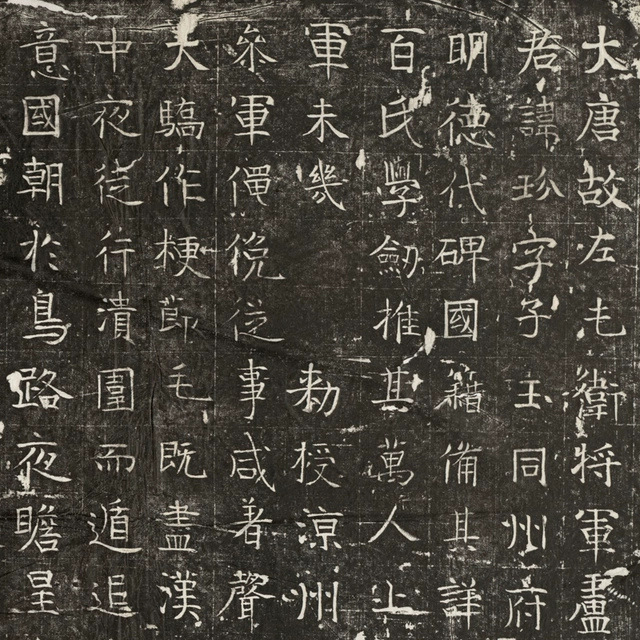 大唐故左屯衛將軍盧
君諱玢字子玉同州府
明德代碑國籍備其詳
百氏學劒推其萬人上
軍未幾　敕授涼州
叅軍僶俛從事咸著聲
大驕作梗節毛既盡漢
中夜徒行潰圍而遁追
意國朝於鳥路夜瞻星